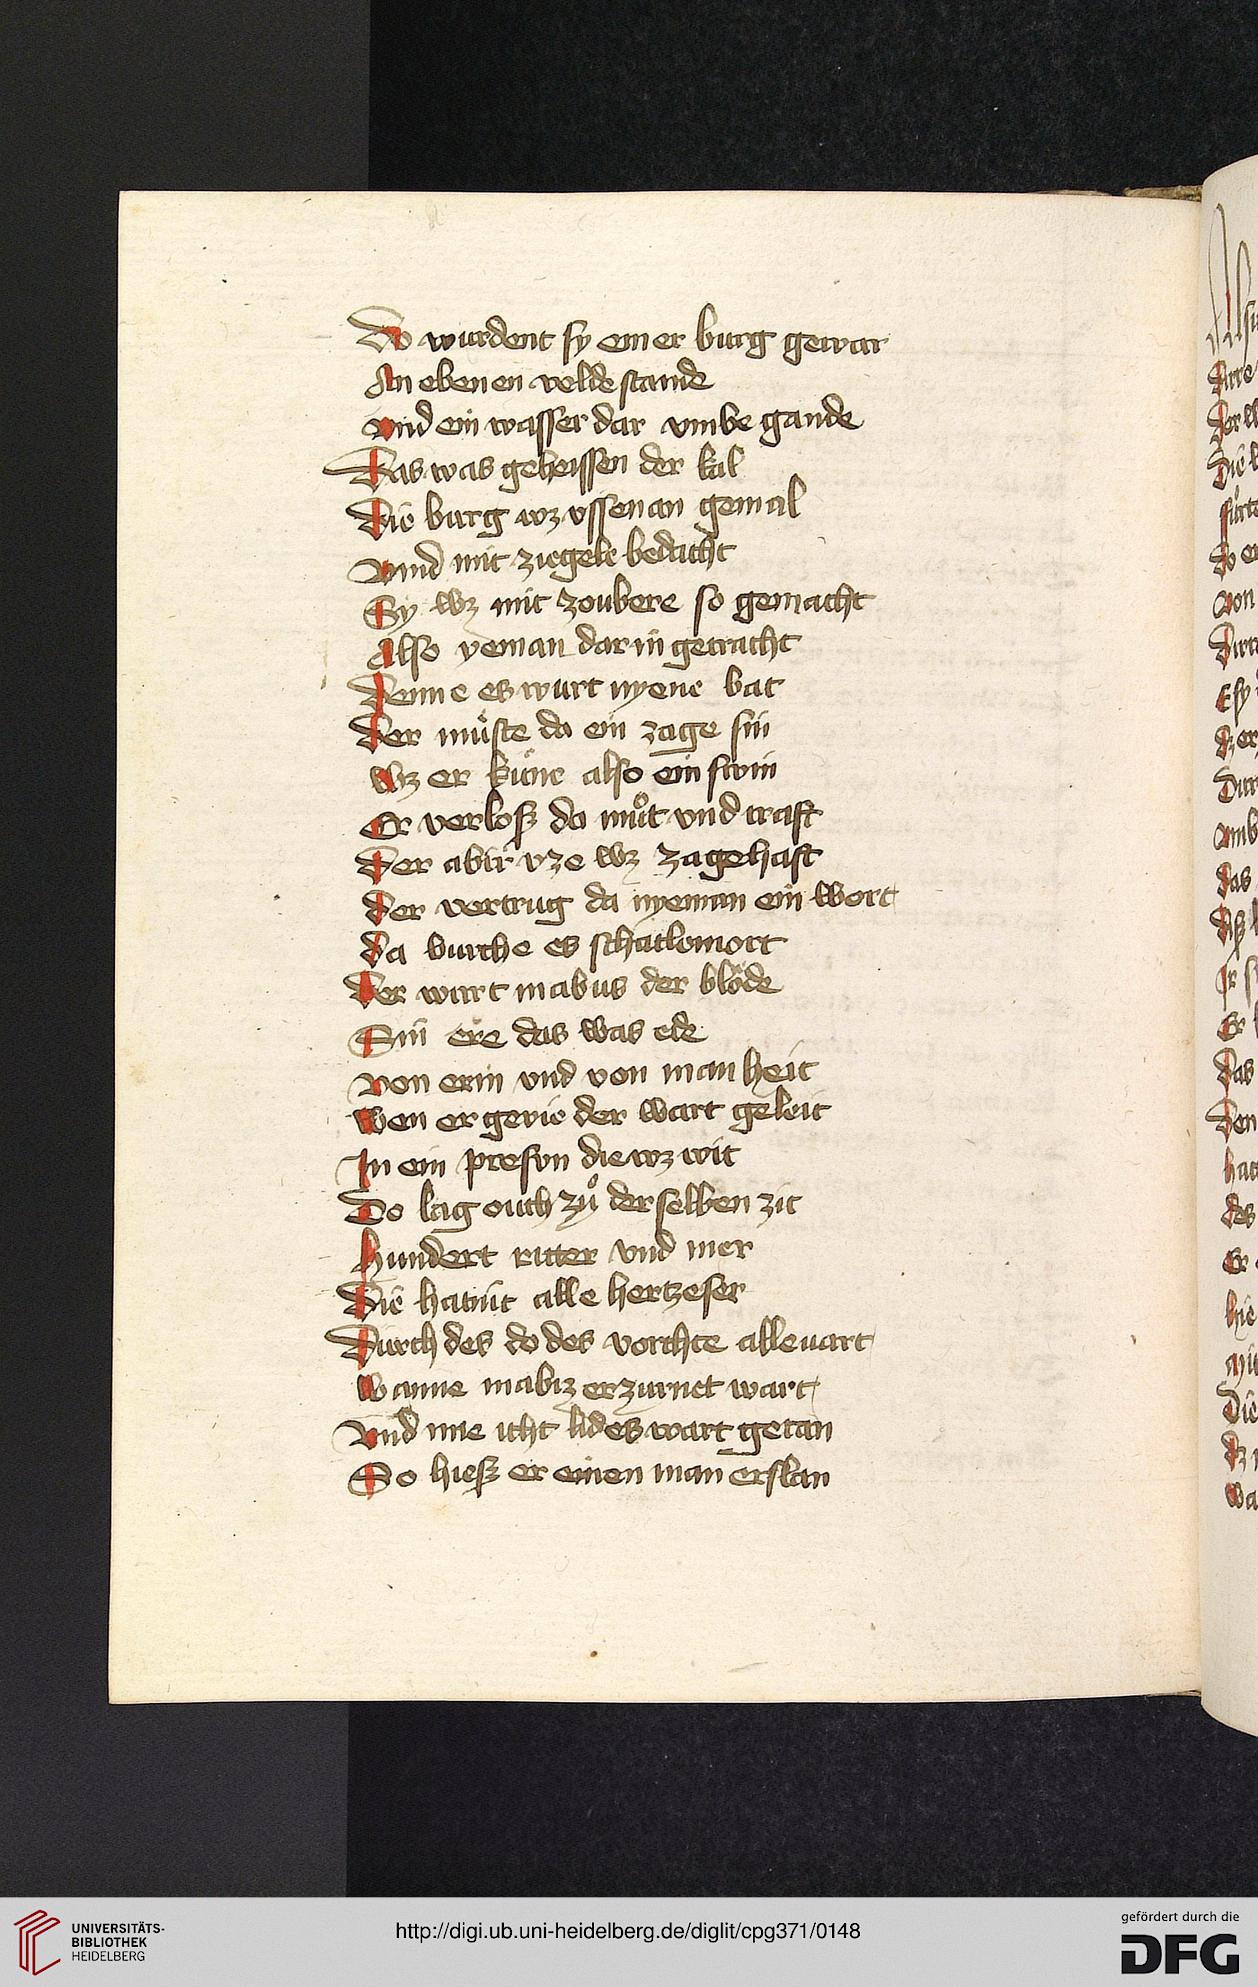 Do wurdent sy einer burg gewar
An ebenen velde stande
vnd ein wasser dar vmbe gande
Das was geheissen der kal
Die burg wz vssenan gemal
vnnd mit ziegele bedacht
Sy wz mit zoubere so gemacht
Also yeman dar in getracht
Denne es wurt nyene bat
Der muͤste da ein zage sin
wz er kuͤne also ein swin
Er verlosz da muͦt vnd craft
Der abir vze wz zagehaft
Der vertrug da nyeman ein wort
da burche es schatlomort
Der wart mabus der bloͤde
Sin ere das was ede
von erin vnd von manheit
wen er gevie der wart geleit
In ein presvn die wz wit
Do lag ouch zuͦ der selben zit
Hundert ritter vnd mer
Die hatint alle hertzeser
Durch des dodes vorchte alle vart
wanne mabuz erzurnet wart
Vnd ime icht lides wart getan
So hiesz er einen man erslan
UNIVERSITÄTS-
BIBLIOTHEK
HEIDELBERG
http://digi.ub.uni-heidelberg.de/diglit/cpg371/0148
gefördert durch die
DFG